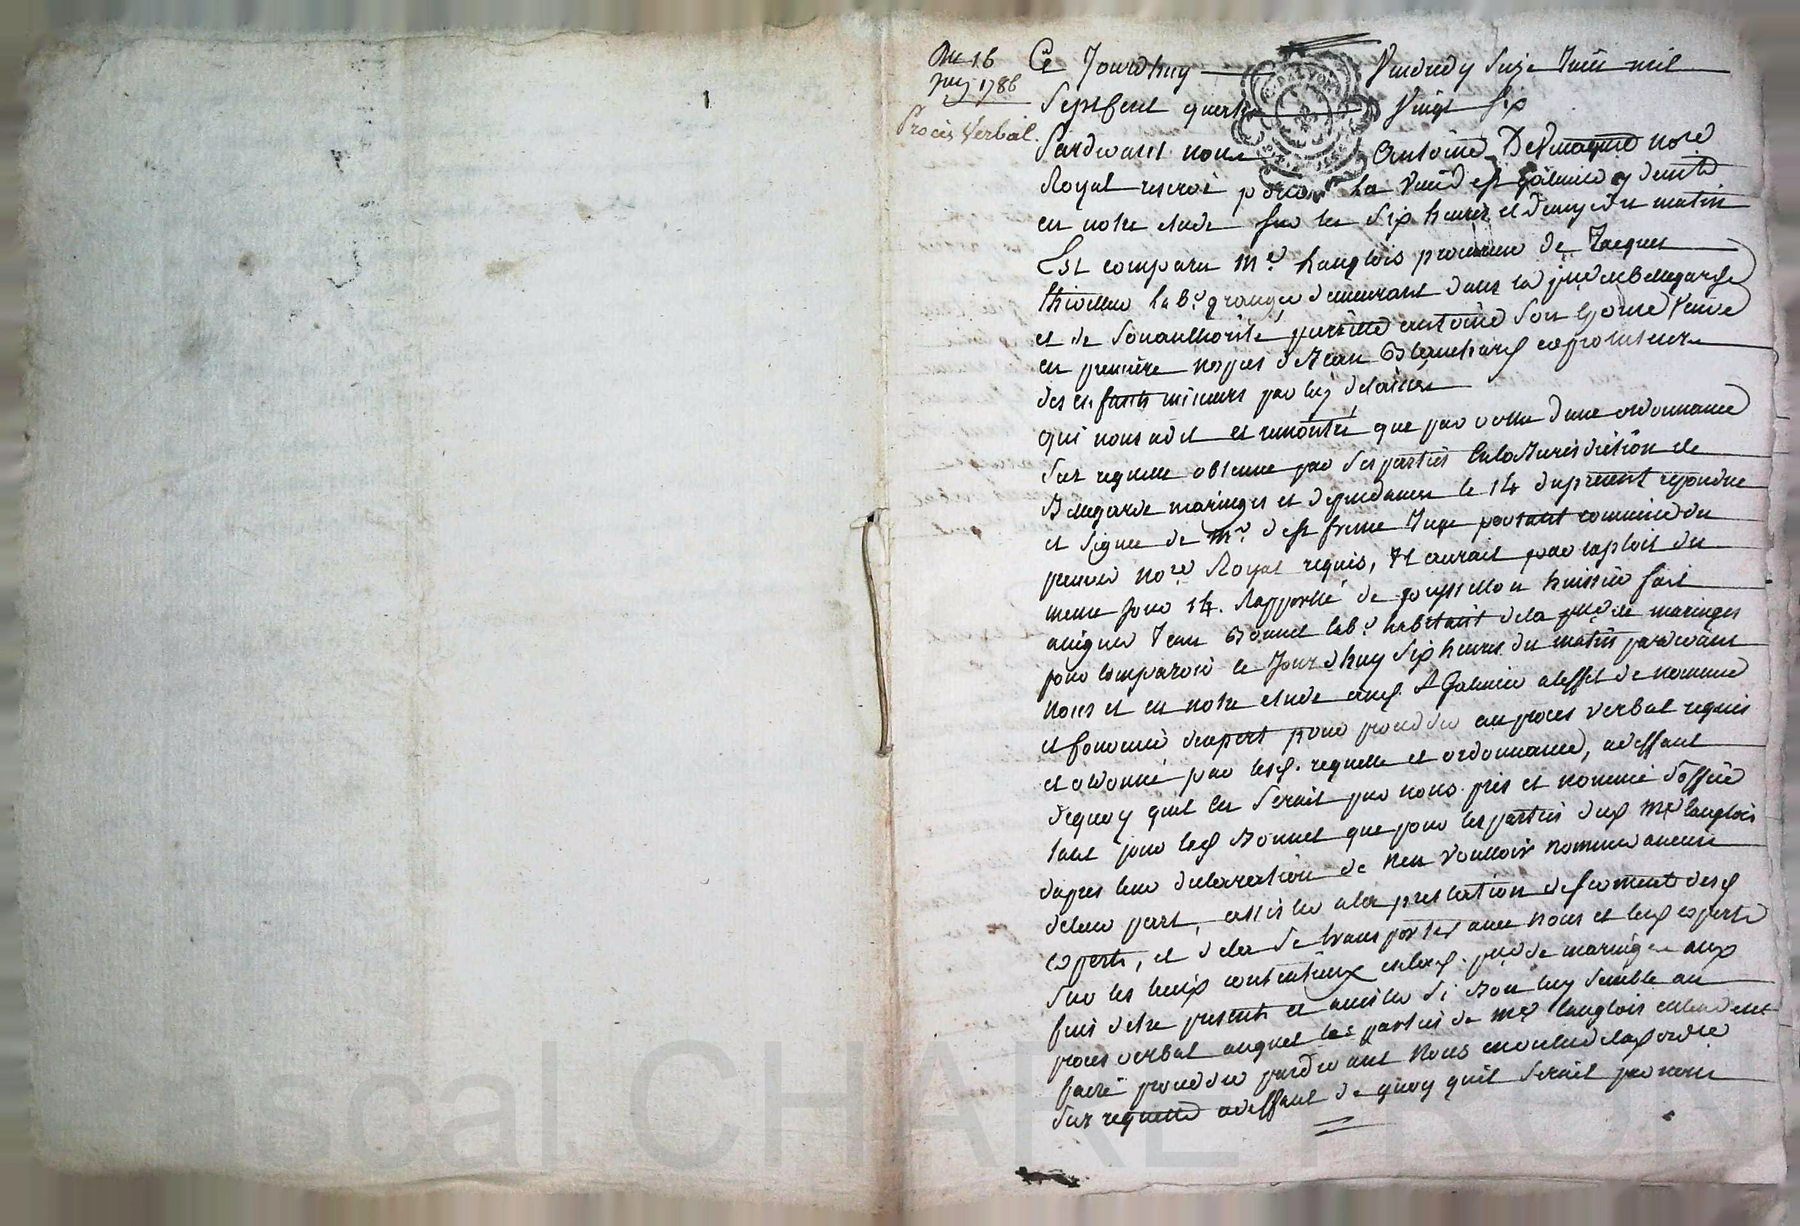 Du 16
Juin 1786
Procès Verbal
Ce Jourdhuy Vendredy Seize Juin mil
Sept Cent quatre Vingt Six
Pardevant nous Antoine no.re
Royal reservé pour la Ville de St Galmier y demt
en notre etude sur les Six heures et demy du matin
Est comparu Me. Langlois procureur de Jacques
Thiollier lab.r granger demeurant dans la p.sse de Bellegarde
et de Son authorité antoine Son Epouse Veuve
en premiere nopces de Jean Blanchard et protuteur
des enfants mineurs par luy delaissés
qui nous a dit et remontré que par vertu d'une ordonnance
Sur requette obtenue par Ses parties en la Jurisdiction de
Bellegarde maringes et dependances le 14 du present repondue
et Signée de Mr. Juge portant commission du
premier no.re Royal requis, Il aurait par exploit du
meme jour 14. Rapporté de huissier fait
assigner Jean Bonnet lab.r habitant de la p.sse de maringes
pour Comparoir le Jourdhuy Six heures du matin pardevant
nous et en notre etude aud. St Galmier a leffet de nommer
et convenir dexpert pour proceder au proces verbal requis
et ordonné par lesd. requette et ordonnance, adeffaut
dequoy quil en Serait par nous pris et nommé doffice
tant pour led Bonnet que pour les parties dud Me Langlois
dapres leur declaration de nen Voulloir nommer aucun
deleur part, assister a la prestation de serment desd
experts, et dela Se transporter avec nous et lesd experts
Sur les lieux contentieux enlad. p.sse de maringes aux
fins detre present et assister Si Bon luy Semble au
proces verbal auquel les parties de Me Langlois entendent
faire proceder pardevant Nous en vertu de lad ordce
Sur requette adeffaut de quoy quil Serait par nous